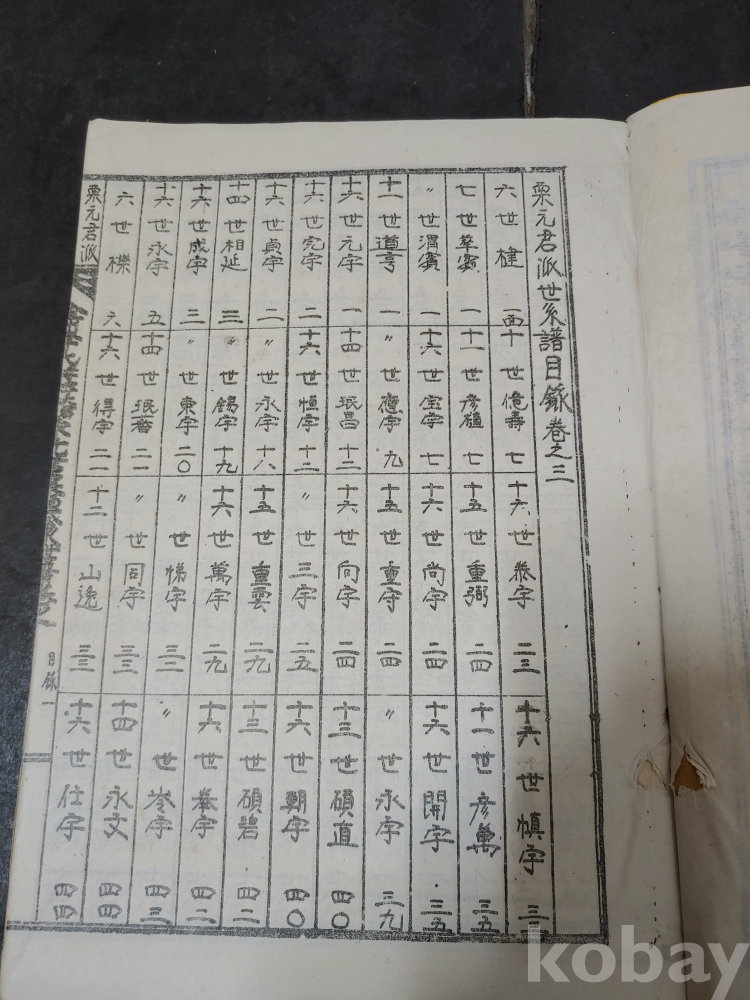 栗元君派世系譜目錄卷之三
六世楗 一面
七世 一
〃世渭濱 一
十一世道亨 一
十六世元字 一
十六世完字 二
十六世貞字 二
十四世相延 三
十六世成字 三
十六世永字 五
六世櫟 六
十世億壽 七
十一世彦植 七
十六世宝字 七
〃世應字 九
十四世珉昌 十二
十六世恒字 十二
〃世永字 十八
〃世錫字 十九
〃世東字 二〇
十四世珉蕃 二一
十六世得字 二一
十六世泰字 二三
十五世重弼 二四
十六世尚字 二四
十五世重守 二四
十六世向字 二四
〃世三字 二五
十五世重雲 二九
十六世萬字 二九
〃世悌字 三二
〃世同字 三三
十二世山逸 三三
十六世愼字
十一世彦萬 三五
十六世開字 三五
〃世永字 三九
十三世碩直 四〇
十六世朝字 四〇
十三世碩碧 四二
十六世字 四二
〃世岑字 四三
十四世永文 四四
十六世仕字 四四
栗元君派
目錄一
kobay